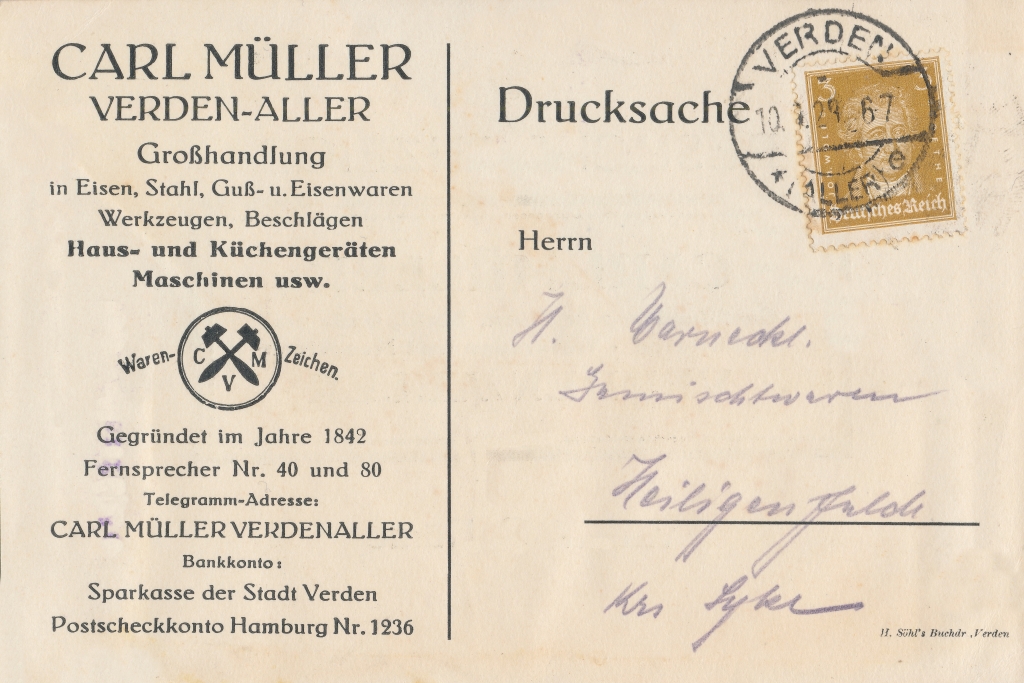 CARL MÜLLER
VERDEN-ALLER
Großhandlung
in Eisen, Stahl, Guß- u. Eisenwaren
Werkzeugen, Beschlägen
Haus- und Küchengeräten
Maschinen usw.
Waren- C M V Zeichen.
Gegründet im Jahre 1842
Fernsprecher Nr. 40 und 80
Telegramm-Adresse:
CARL MÜLLER VERDENALLER
Bankkonto:
Sparkasse der Stadt Verden
Postscheckkonto Hamburg Nr. 1236
Drucksache
VERDEN
10. 29. 6-7
* (ALLER) e
3
Deutsches Reich
Herrn
H. Warneck.
Gemischtwaren
Heiligenfelde
Krs Syke
H. Söhl's Buchdr., Verden